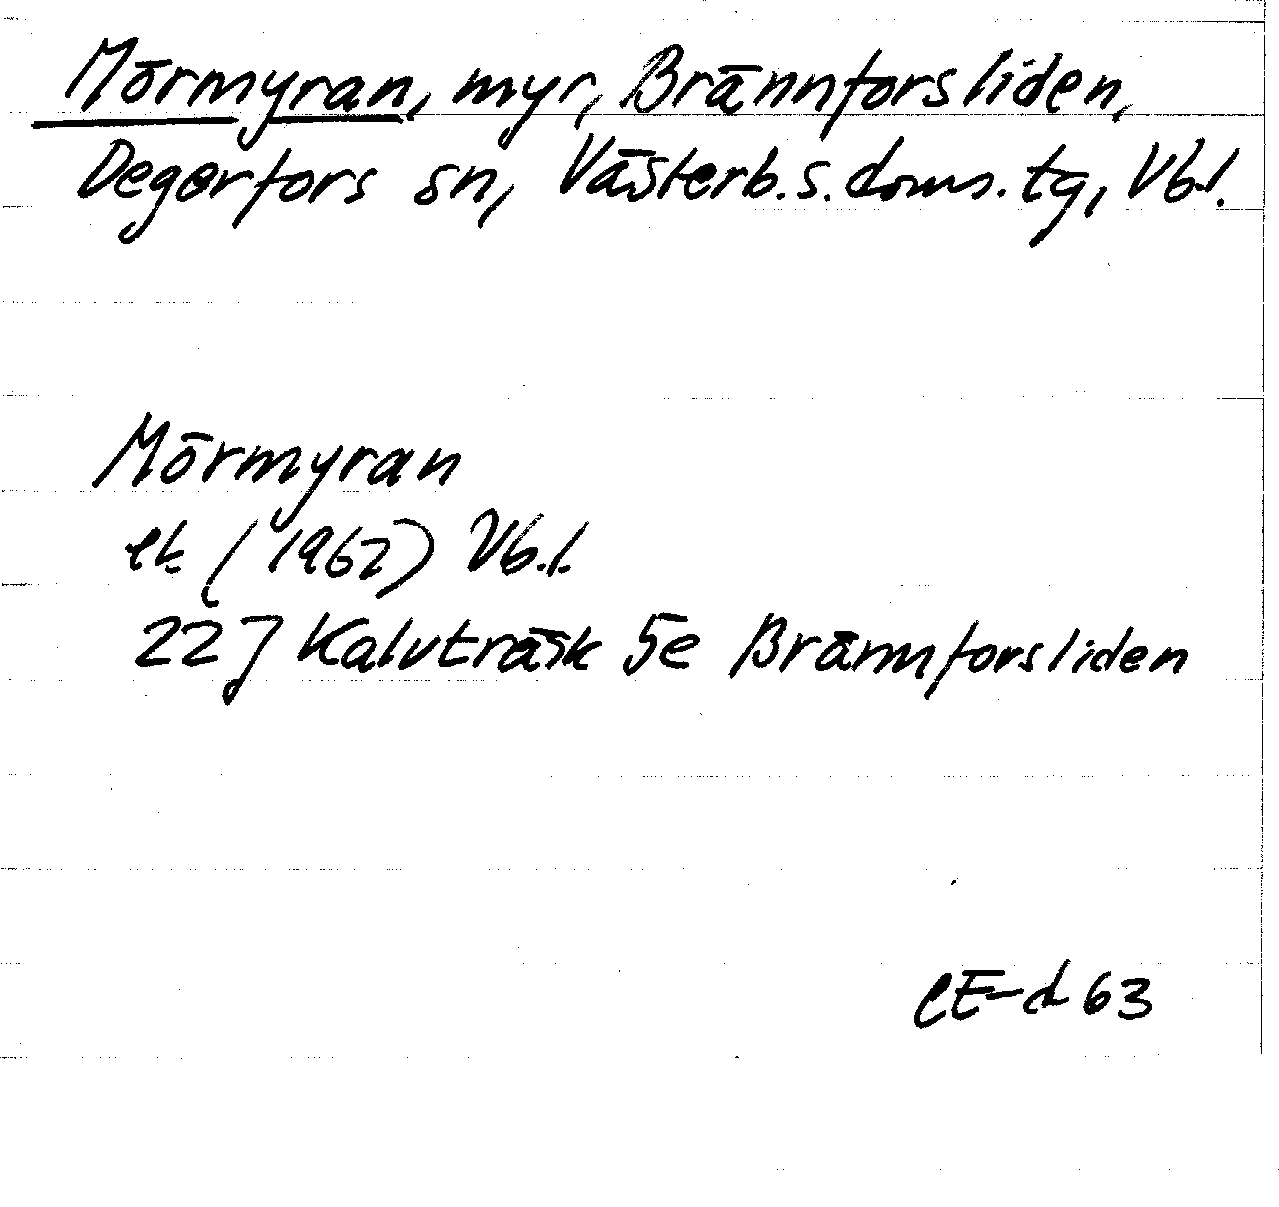 Mörmyran, myr, Brännforsliden,
Degerfors sn, Västerb.s.doms.tg, Vb.l.
Mörmyran
ek (1962) Vb.l.
22 J Kalvträsk 5e Brännforsliden
CE-d 63